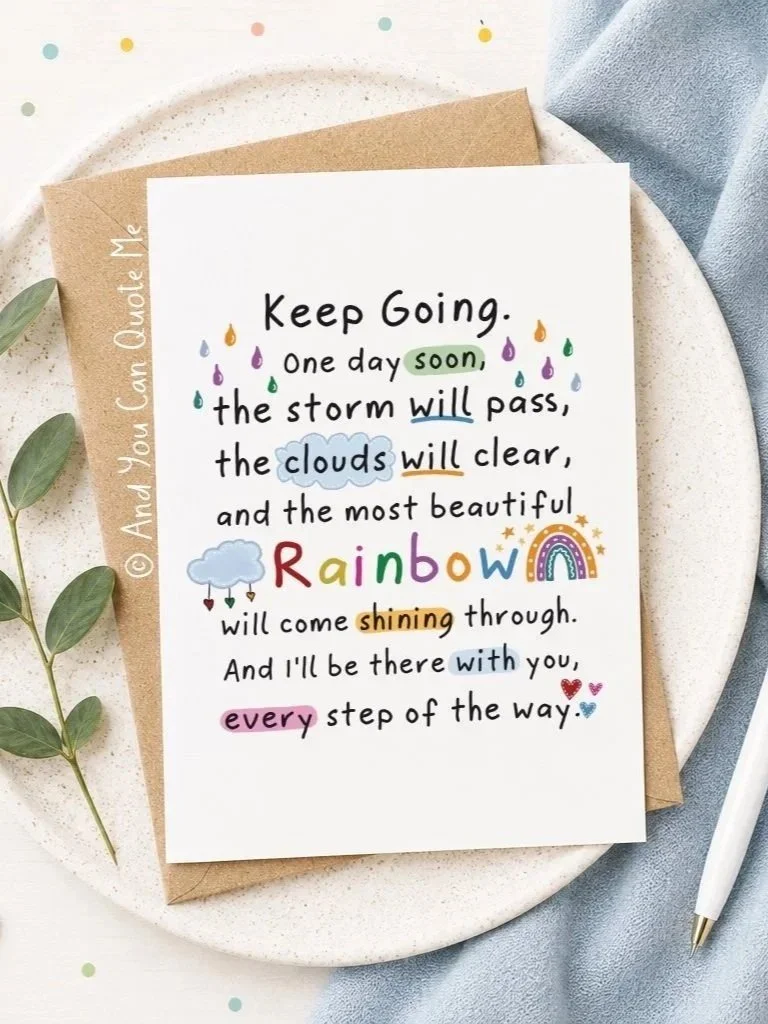 Keep Going.
One day soon,
the storm will pass,
the clouds will clear,
and the most beautiful
Rainbow
will come shining through.
And I'll be there with you,
every step of the way.
© And You Can Quote Me